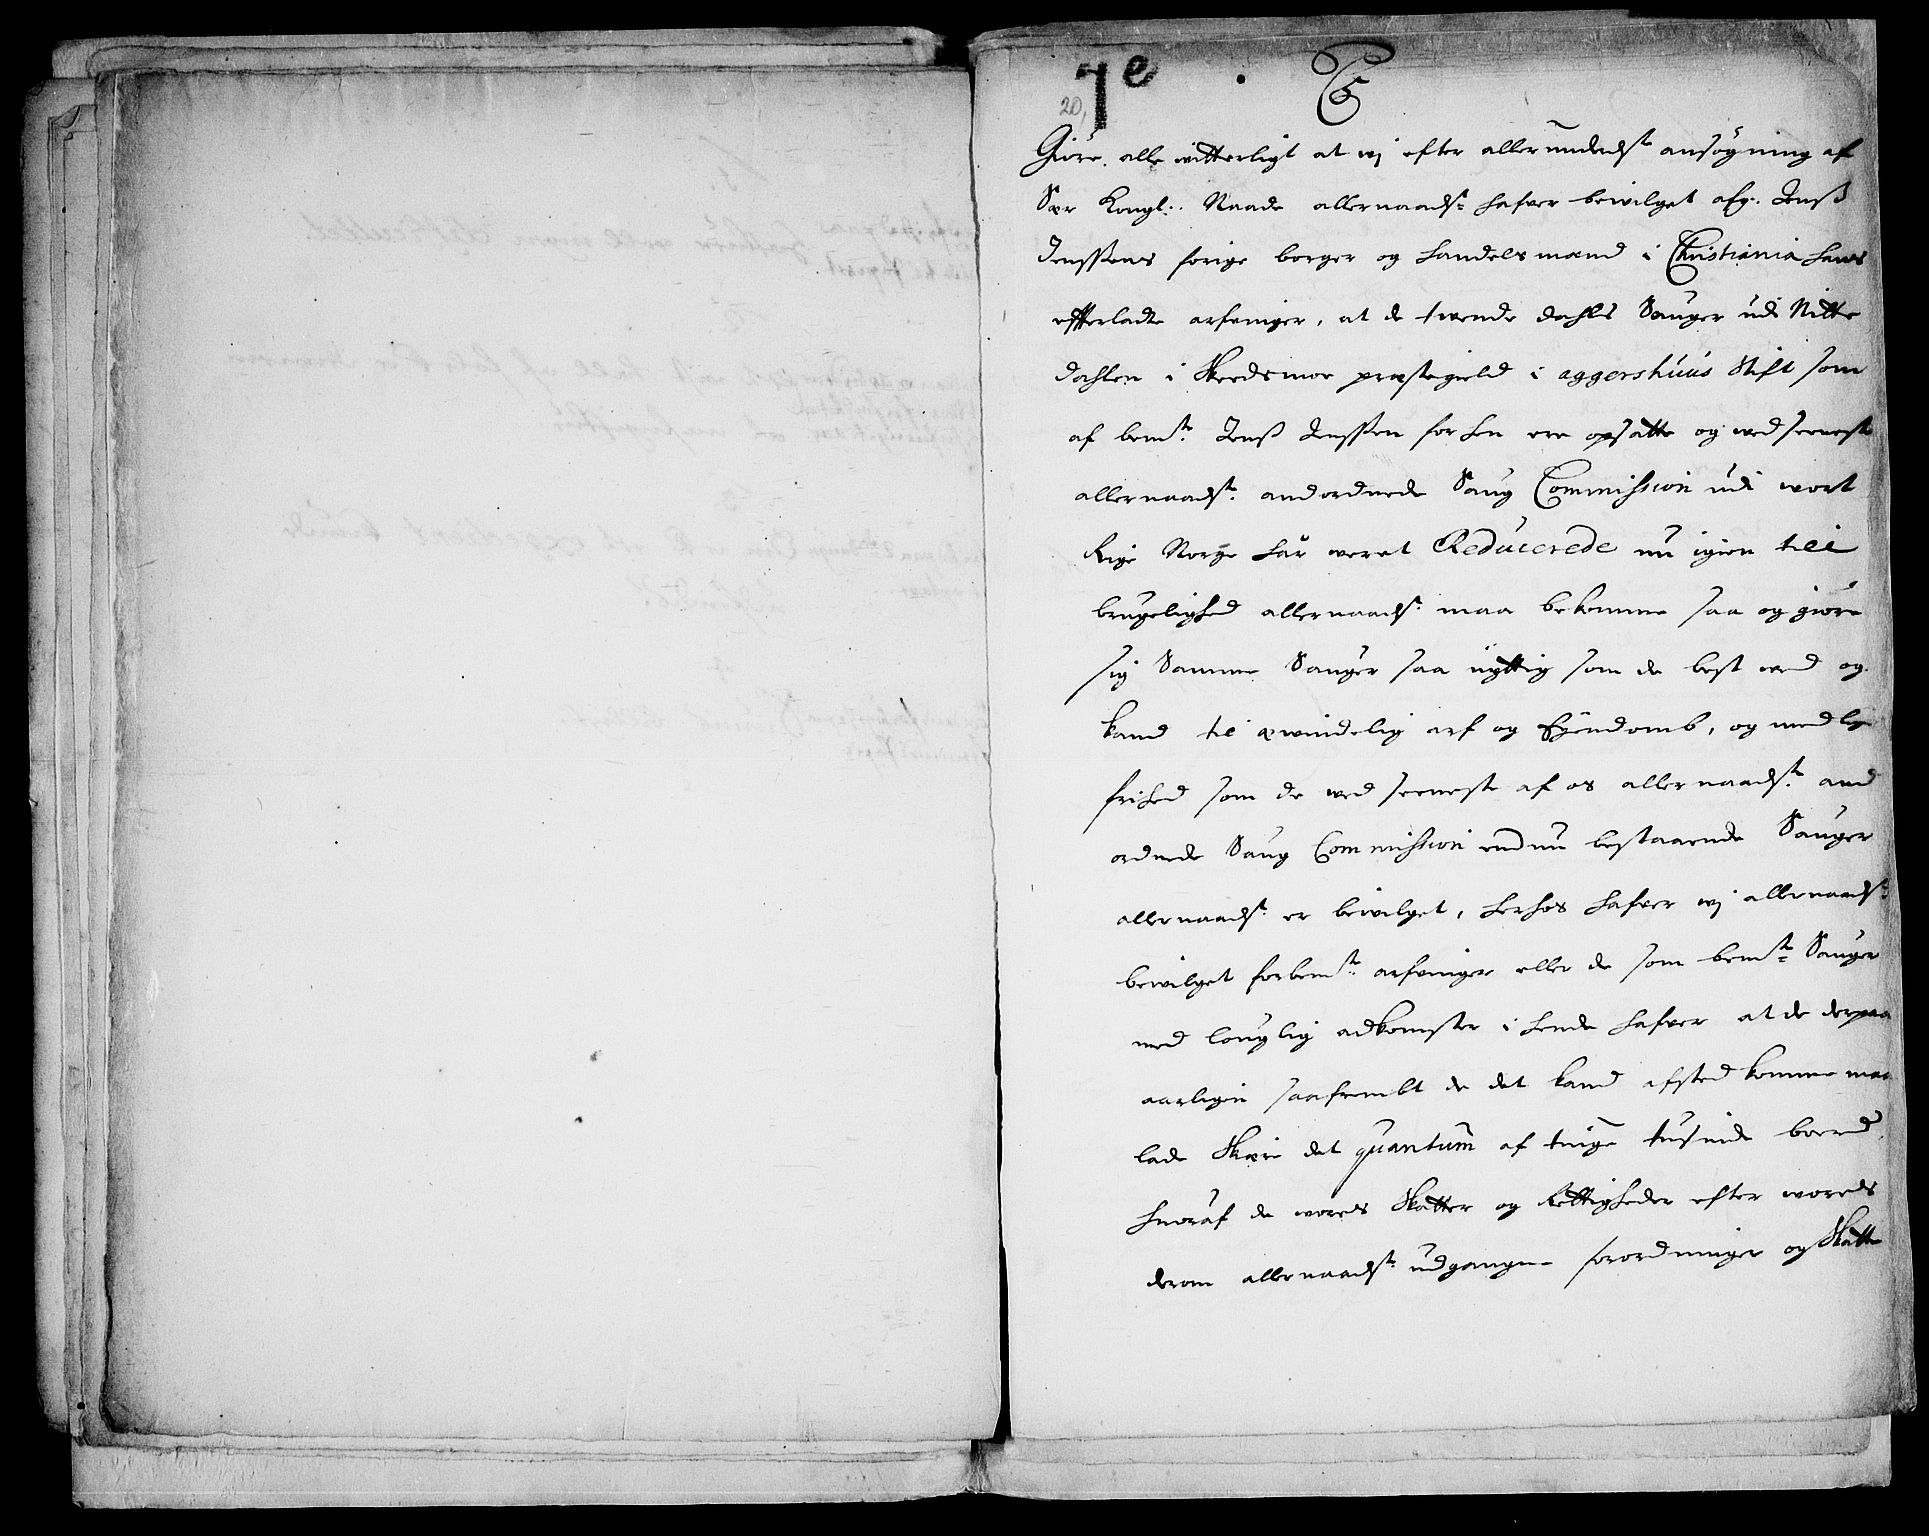 7e
20,
C5
Giöre alle witterligt at wj efter allerunderdst ansögning af
Vor Kongl: Naade allernaadst hafver bewilget afg. Jenß
Jenssens forige borger og handelsmand i Christiania hans
effterladte arfvinger, at de twende dahls Sauger udi Nitte
dahlen i Skeedsmoe præstegield i aggershuus Stift som
af bemte Jenß Jenssen forhen ere opsatte og wed seeneste
allernaadst andordnede Saug Commission udi wort
Rige Norge har weret Reducerede nu igien till
brugelighed allernaadst maa bekomme saa og giöre
sig Samme Sauger saa nyttig som de best wed og
kand til ewindelig arf og Eyendomb, og med lige
frihed som de wed seeneste af os allernaadst and
ordnede Saug Commission endnu bestaaende Sauger
allernaadst er bewilget, herhos hafver wj allernaadst
bewilget forbemte arfvinger eller de som bemte Sauger
med louglig adkomster i hende hafver at de derpaa
aarligen saafrembt de det kand afsted komme maa
lade Skære det quantum af tiuge tusinde boerd,
hvoraf de worес Skatter og Rettigheder efter worес
derom allernaadst udgangne forordninger og Skatte